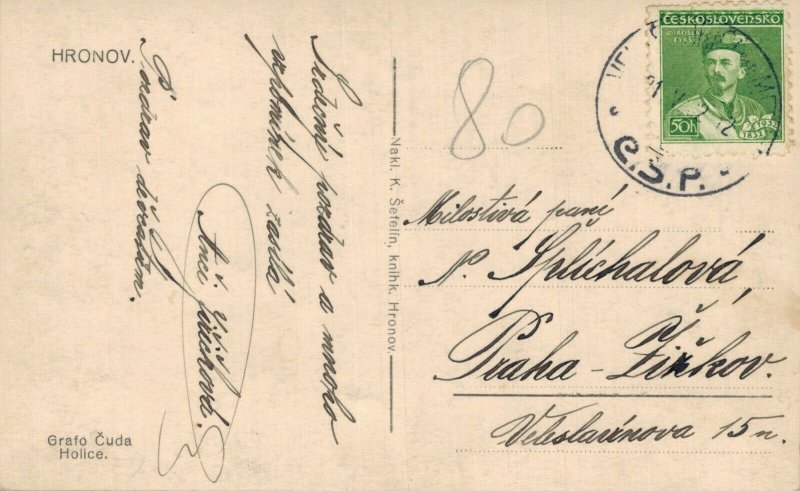 HRONOV.
Srdečný pozdrav a mnoho
vzpomínek zaslá
Anči
Pozdrav děvčatům.
Grafo Čuda
Holice.
Nakl. K. Šefelín, knihk. Hronov.
80
ČESKOSLOVENSKO
MIROSLAV
TYRŠ
50h
1932
1832
Č.S.P.
Milostivá paní
N. Splíchalová,
Praha-Žižkov.
Veleslavínova 15 n.